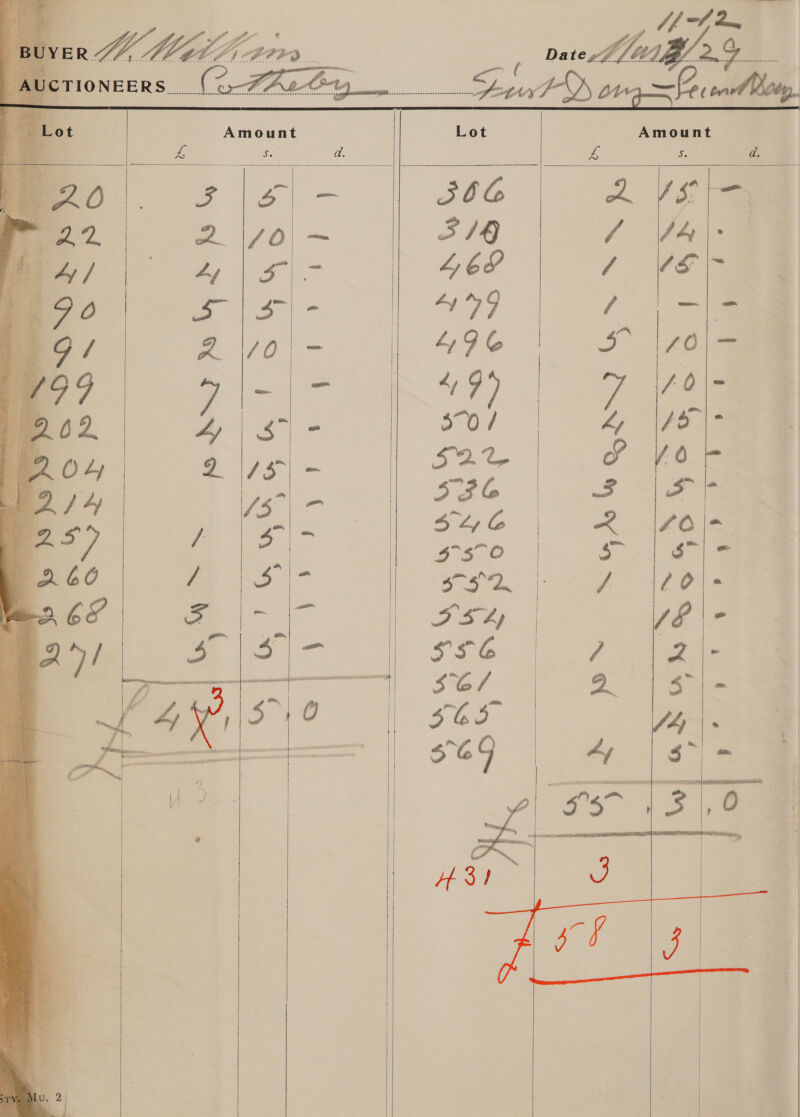 11-12
BUYER W. Wilkins Date Mar 29
AUCTIONEERS Sotheby First Day — Second Day
Lot Amount Lot Amount
£ s. d. £ s. d.
20 3 5 -
22 2 10 -
41 4 5 -
90 5 5 -
91 2 10 -
199 7 - -
202 4 5 -
204 2 15 -
214 15 -
257 1 5 -
260 1 5 -
268 3 - -
271 5 5 -
£ 4 3, 5, 0
43
306 2 15 -
319 1 14 -
468 1 15 -
479 1 - -
496 5 10 -
497 7 10 -
501 4 15 -
522 8 10 -
536 3 5 -
546 2 10 -
550 5 5 -
552 1 10 -
554 18 -
556 1 2 -
561 2 5 -
565 14 -
569 4 5 -
£ 55, 3, 0
431 3
£ 58 3
Mu. 2